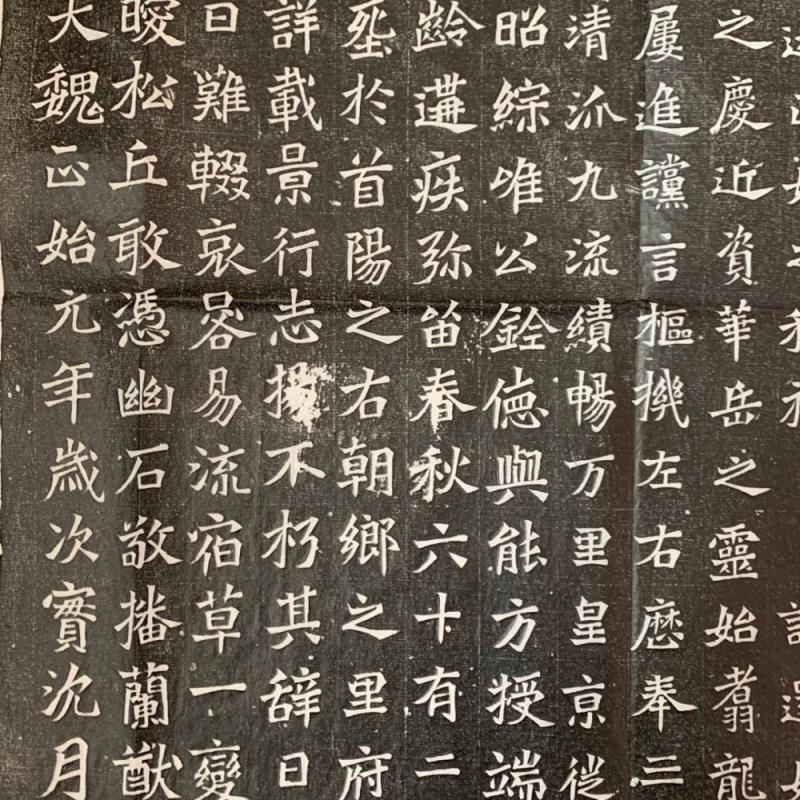 之慶近資華岳之靈始翥龍
屢進讜言樞機左右歷奉三
清派九流績暢万里皇京從
昭綜唯公銓德與能方授端
齡遘疾弥留春秋六十有二
於首陽之右朝鄉之里府
詳載景行志揚不朽其辞曰
日難輟哀晷易流宿草一變
曖松丘敢憑幽石敬播蘭猷
大魏正始元年歲次實沈月